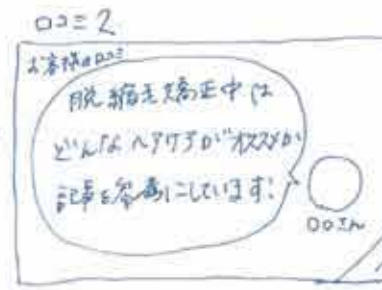 口コミ2
お客様の口コミ
脱縮毛矯正中は
どんなヘアケアがオススメか
記事を参考にしています!
〇〇さん